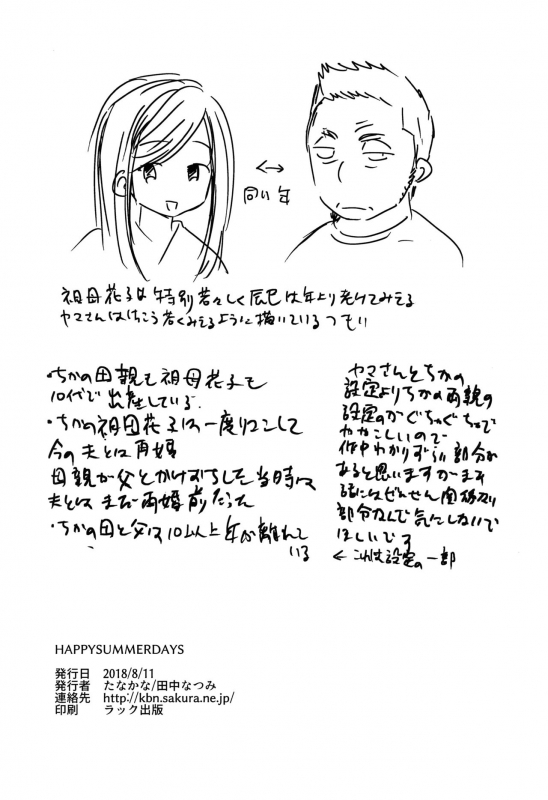 同い年
祖母花子は特別若々しく辰巳は年より老けてみえる
ヤマさんはけっこう若くみえるように描いているつもり
・ちかの母親も祖母花子も
10代で出産している。
・ちかの祖母花子は一度りこんして
今の夫とは再婚
母親が父とかけおちした当時は
夫とはまだ再婚前だった
・ちかの母と父は10以上年が離れて
いる
ヤマさんとちかの
設定よりちかの両親の
設定のがぐちゃぐちゃで
ややこしいので
作中わかりずらい部分が
あると思いますが…まぁ
話にはぜんぜん関係ない
部分なんで気にしないで
ほしいです
← これは設定の一部
HAPPYSUMMERDAYS
発行日 2018/8/11
発行者 たなかな/田中なつみ
連絡先 http://kbn.sakura.ne.jp/
印刷 ラック出版